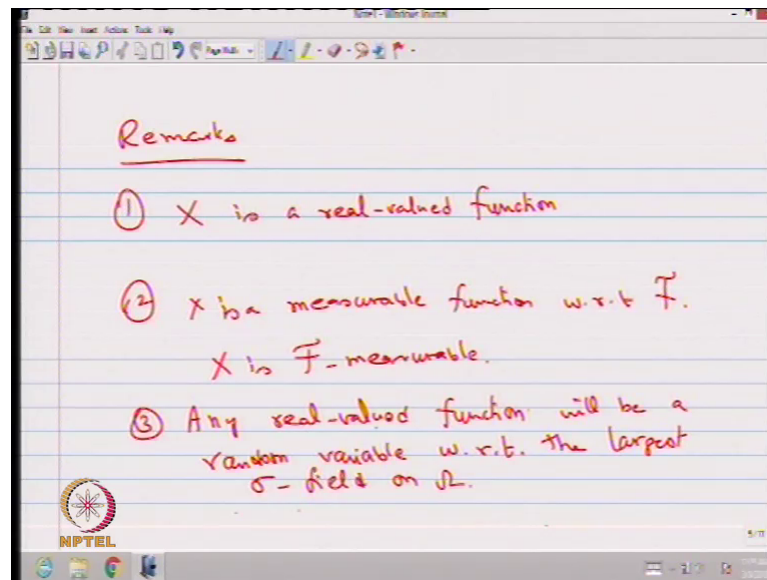 Note1 - Windows Journal
File Edit View Insert Actions Tools Help
Remarks
① X is a real-valued function
② X is a measurable function w.r.t F.
X is F-measurable.
③ Any real-valued function will be a
random variable w.r.t. the largest
σ-field on Ω.
NPTEL
5/11